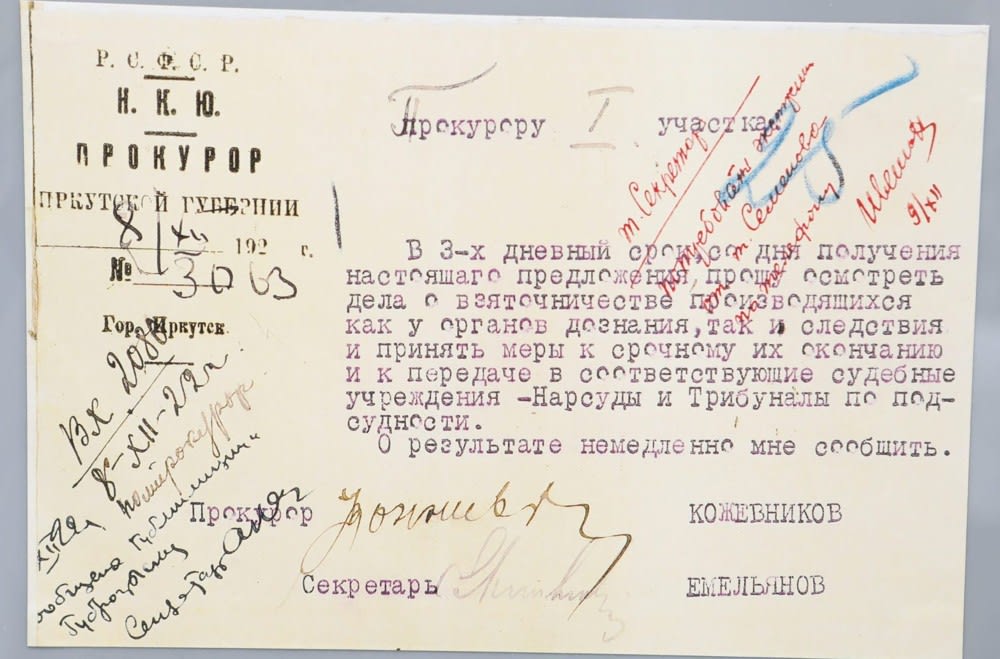 Р. С. Ф. С. Р.
Н. К. Ю.
ПРОКУРОР
ИРКУТСКОЙ ГУБЕРНИИ
8/XII 192 г.
№ 3063
Гор. Иркутск.
Вх. 2080
8-XII-22г.
Прокурору I участка.
т. Секретар
от т. Семенова
по телефону
9/XII
В 3-х дневный срок со дня получения
настоящаго предложения, прошу осмотреть
дела о взяточничестве производящихся
как у органов дознания, так и следствия
и принять меры к срочному их окончанию
и к передаче в соответствующие судебные
учреждения -Нарсуды и Трибуналы по под-
судности.
О результате немедленно мне сообщить.
Прокурор КОЖЕВНИКОВ
Секретарь ЕМЕЛЬЯНОВ
помпрокурор
Секретарь